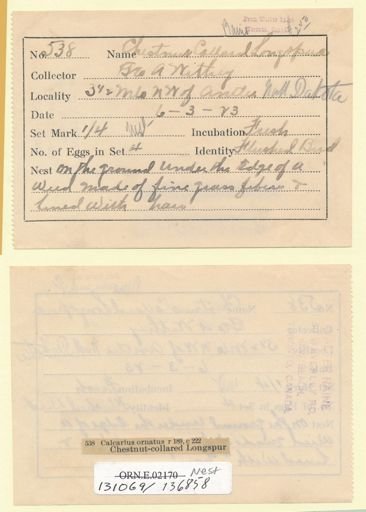 No. 538 Name Chestnut Collared Longspur
Collector Geo A Withey
Locality 3 1/2 Mls N W of North Dakota
Date 6-3-23
Set Mark 1/4 Incubation Fresh
No. of Eggs in Set 4 Identity Flushed Bird
Nest On the ground under the edge of a
Weed made of fine grass fibers &
lined with hair
538 Calcarius ornatus r 189, e 222
Chestnut-collared Longspur
ORN.E.02170 Nest
131069/ 136858